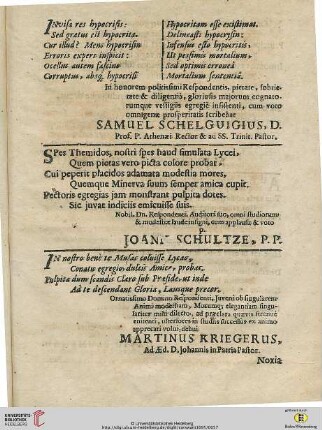 INvisa res hypocrisis:
Sed gratus est hypocrita.
Cur illud? Mens hypocrisin
Erroris expers inspicit:
Ocellus autem
Corruptus, absq; hypocrisi
Hypocritam esse existimat.
Delineasti hypocrisin,
Infensus esto hypocritis,
Ut pessimis mortalium,
Sed optimis errones
Mortalium sententiâ.
In honorem politissimi Respondentis, pietate, sobrie-
tate & diligentiâ, gloriosis majorum cognato-
rumque vestigiis egregiè insistenti, cum voto
omnigenæ prosperitatis scribebat
SAMUEL SCHELGUIGIUS, D.
Prof. P. Athenæi Rector & ad SS. Trinit. Pastor.
SPes Themidos, nostri spes haud simulata Lycei,
Quem pietas vero picta colore probat,
Cui peperit placidos adamata modestia mores,
Quemque Minerva suum semper amica cupit.
Pectoris egregias jam monstrant pulpita dotes.
Sic juvat indiciis emicuisse suis.
Nobil. Dn. Respondenti, Auditori suo, omni studiorum
& modestiæ laude insigni, cum applausu & voto
p.
JOANN. SCHULTZE, P. P.
IN nostro benè te Musas coluisse Lyceo,
Conatu egregio, dulcis Amice, probat.
Pulpita dum scandis Claro sub Præside, ut inde
Ad te descendat Gloria, Lausque precor.
Ornatissimo Domino Respondenti, Juveni ob singularem
Animi modestiam, Morumq; elegantiam singu-
lariter mihi dilecto, ad præclara quævis strenuè
enitenti, uberiores in studiis successus ex animo
apprecari volui, debui
MARTINUS KRIEGERUS,
Ad Æd. D. Johannis in Patria Pastor.
Noxia
UNIVERSITÄTS-
BIBLIOTHEK
HEIDELBERG
© Universitätsbibliothek Heidelberg